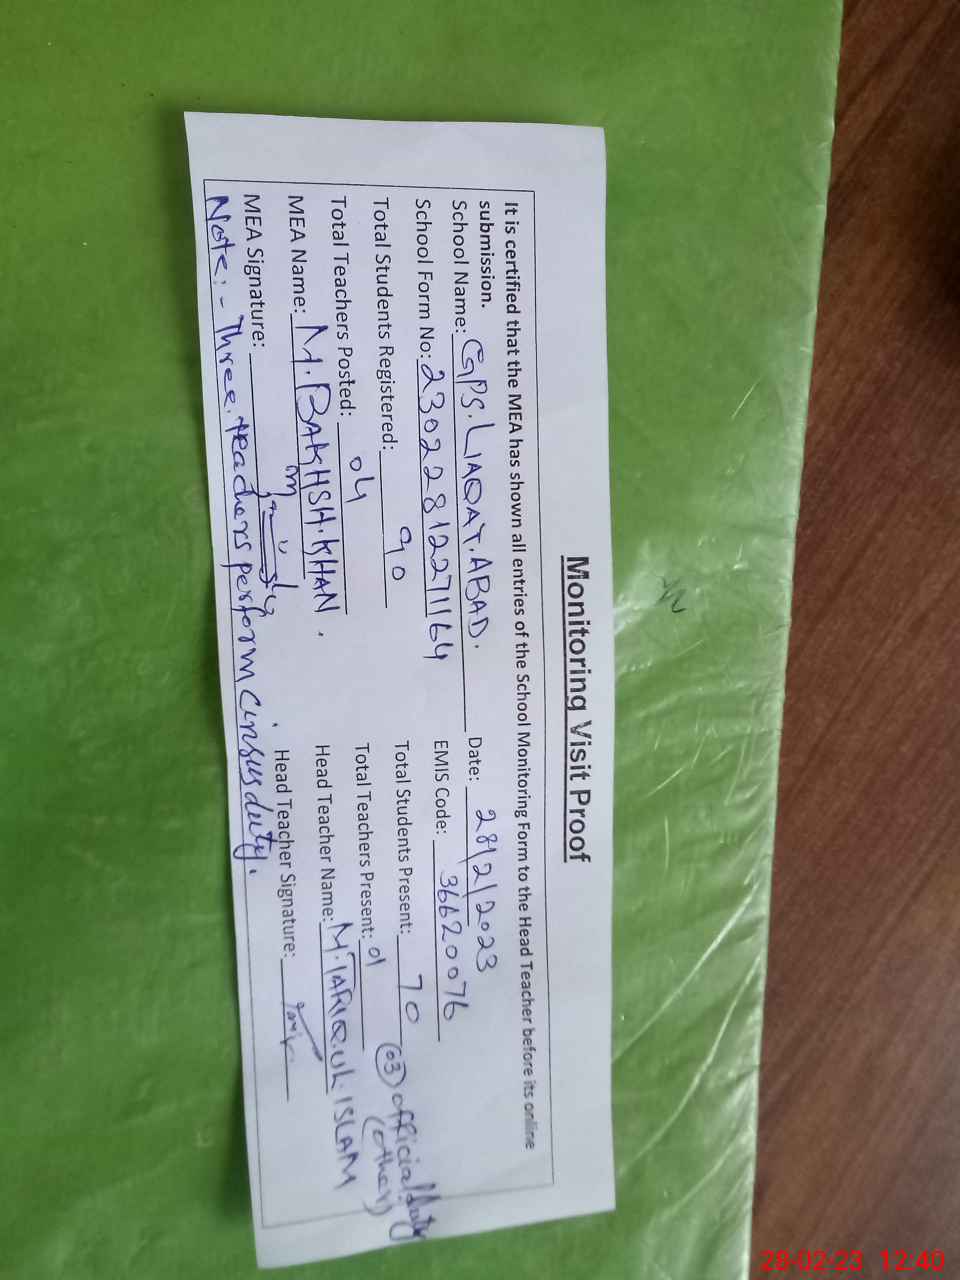 Monitoring Visit Proof
It is certified that the MEA has shown all entries of the School Monitoring Form to the Head Teacher before its online
submission.
School Name: GPS. LIAQAT. ABAD. Date: 28/2/2023
School Form No: 23022812271164 EMIS Code: 36620076
Total Students Registered: 90 Total Students Present: 70
Total Teachers Posted: 04 Total Teachers Present: 01 (03) official duty (other)
MEA Name: M. BAKHSH. KHAN. Head Teacher Name: M. TARIQ. UL. ISLAM
MEA Signature: Head Teacher Signature:
Note:- Three teachers perform cinsus duty.
28-02-23 12:40